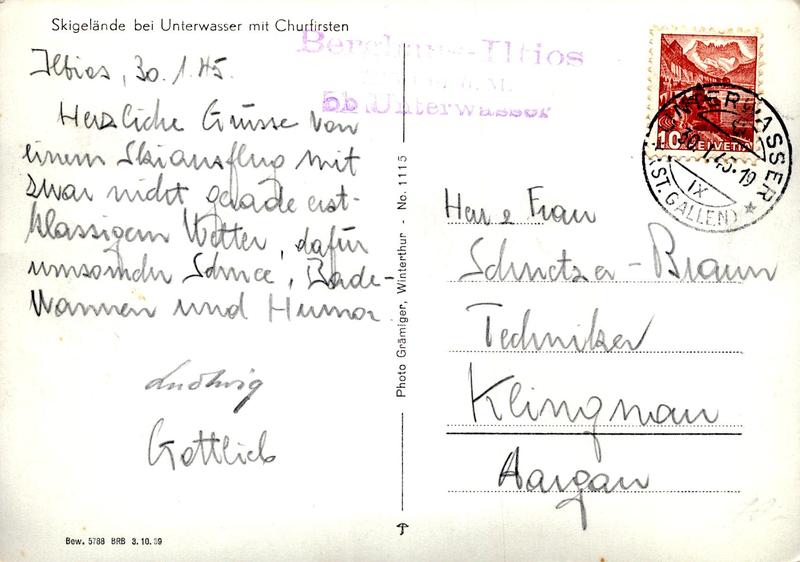 Skigelände bei Unterwasser mit Churfirsten
Berghaus-Iltios
ob Unterwasser
Iltios, 30.1.45.
Herzliche Grüsse von
einem Skiausflug mit
zwar nicht gerade erst-
klassigem Wetter, dafür
umsomehr Schnee, Bade-
Wannen und Humor
Ludwig
Gottlieb
Bew. 5788 BRB 3.10.39
Photo Grämiger, Winterthur - No. 1115
10 HELVETIA
UNTERWASSER
30.I.45-19
IX
(ST. GALLEN)
Herr & Frau
Schnetzer-Braun
Techniker
Klingnau
Aargau